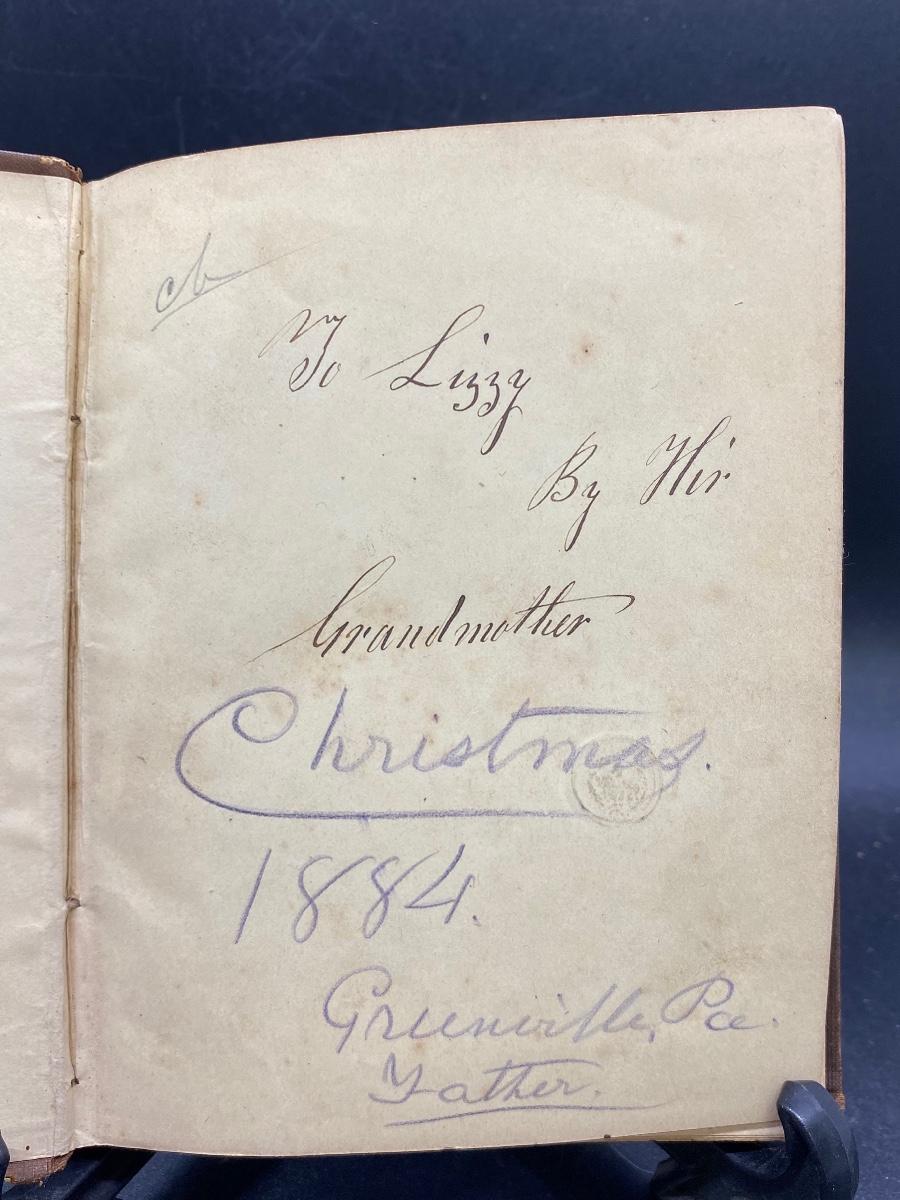 cb
To Lizzy
By Her
Grandmother
Christmas.
1884.
Greenville, Pa.
Father.